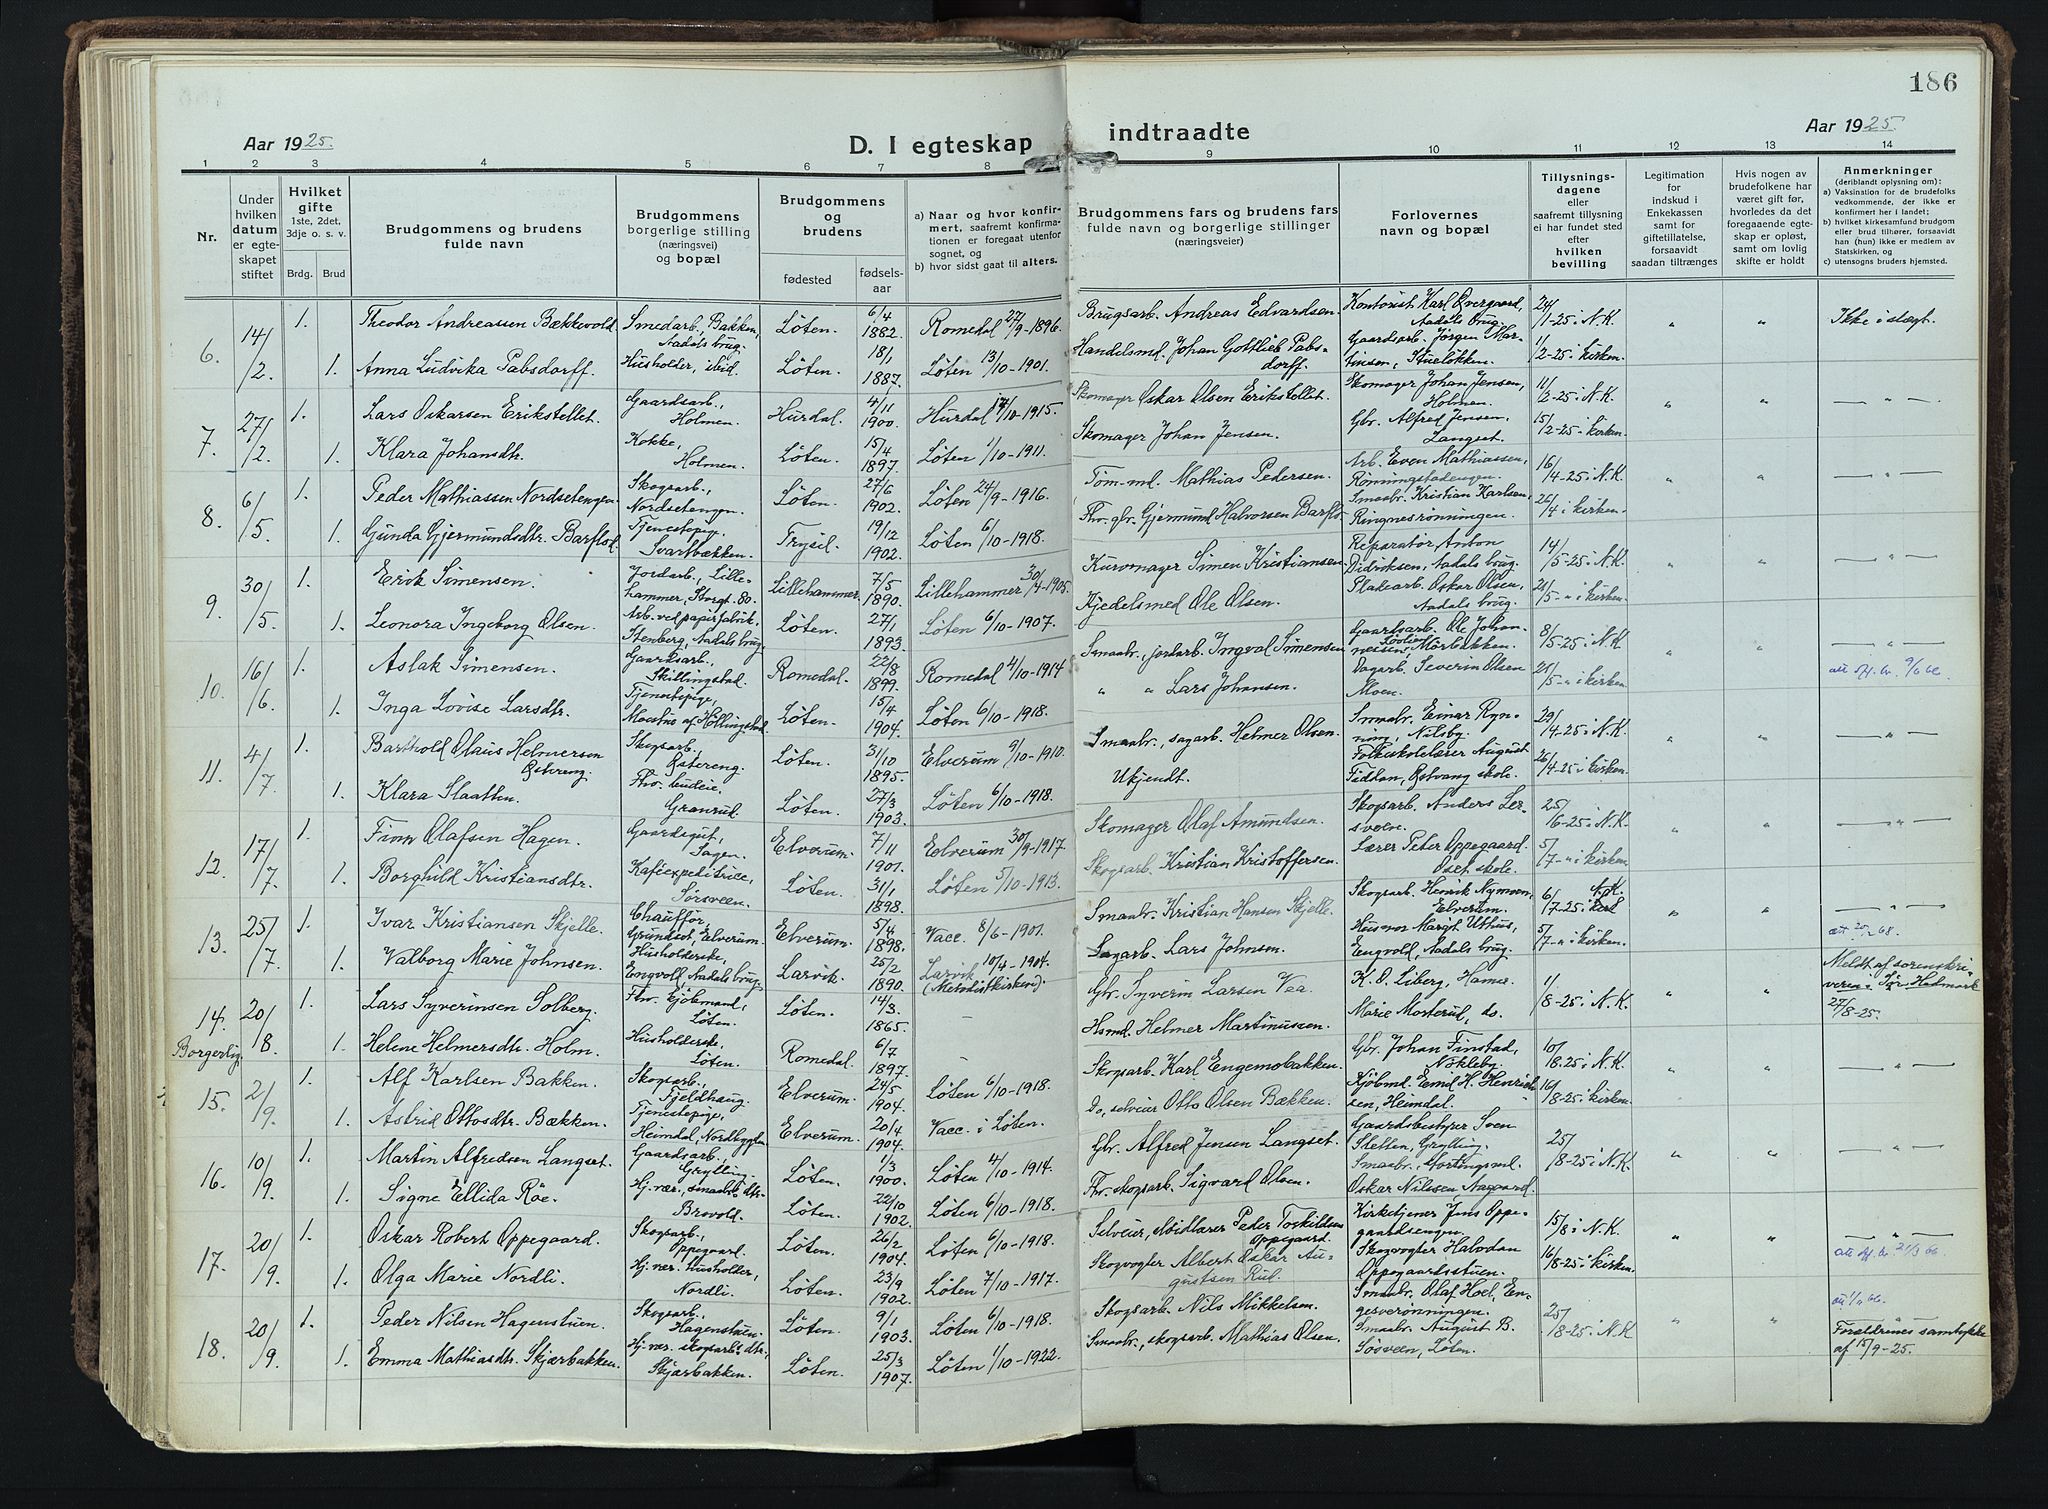 186
Aar 1925.
D. I egteskap indtraadte
Aar 1925.
1 2 3 4 5 6 7 8 9 10 11 12 13 14
Nr.
Under hvilken datum er egteskapet stiftet
Hvilket gifte 1ste, 2det, 3dje o. s. v.
Brdg. Brud
Brudgommens og brudens fulde navn
Brudgommens borgerlige stilling (næringsvei) og bopæl
Brudgommens og brudens
fødested fødselsaar
a) Naar og hvor konfirmert, saafremt konfirmationen er foregaat utenfor sognet, og
b) hvor sidst gaat til alters.
Brudgommens fars og brudens fars fulde navn og borgerlige stillinger (næringsveier)
Forlovernes navn og bopæl
Tillysningsdagene eller saafremt tillysning ei har fundet sted efter hvilken bevilling
Legitimation for indskud i Enkekassen samt for giftetillatelse, forsaavidt saadan tiltrænges
Hvis nogen av brudefolkene har været gift før, hvorledes da det foregaaende egteskap er opløst, samt om lovlig skifte er holdt
Anmerkninger (deriblandt oplysning om):
a) Vaksination for de brudefolks vedkommende, der ikke er konfirmert her i landet;
b) hvilket kirkesamfund brudgom eller brud tilhører, forsaavidt han (hun) ikke er medlem av Statskirken, og
c) utensogns bruders hjemsted.
6. 14/2 1. Theodor Andreassen Bækkevold Smedarb., Bakken, Aadals brug. Løten. 6/4 1882. Romedal 27/9-1896. Brugsarb. Andreas Edvardsen Kontorist Karl Øvergaard, Aadals brug. 24/1-25 i N.K. " " Ikke i slegt.
1. Anna Ludvika Pabsdorff. Husholder, ibid. Løten. 18/1 1887. Løten 13/10-1901. Handelsmd. Johan Gottlieb Pabsdorff. Gaardsarb. Jørgen Martinsen, Stueløkken. 1/2-25 i kirken.
7. 27/2 1. Lars Oskarsen Erikstellet. Gaardsarb., Holmen. Hurdal. 4/11 1900. Hurdal 17/10-1915. Skomager Oskar Olsen Erikstellet. Skomager Johan Jensen, Holmen. 11/2-25 i N.K. " " — " —
1. Klara Johansdtr. Kokke, Holmen. Løten. 15/4 1897. Løten 1/10-1911. Skomager Johan Jensen. Gbr. Alfred Jensen, Langset. 15/2-25 i kirken.
8. 6/5 1. Peder Mathiassen Nordsetengen. Skogsarb., Nordsetengen. Løten. 27/6 1902. Løten 24/9-1916. Tøm.md. Mathias Pedersen. Arb. Even Mathiassen, Rønningstadengen. 16/4-25 i N.K. " " — " —
1. Gunda Gjermundsdtr. Barflod. Tjenestepig, Svartbækken. Trysil. 19/12 1902. Løten 6/10-1918. Fhv. gbr. Gjermund Halvorsen Barflo. Smaabr. Kristian Karlsen, Ringnesrønningen. 26/4 i kirken.
9. 30/5 1. Erik Simensen. Jordarb., Lillehammer, Storgt. 80. Lillehammer. 7/5 1890. Lillehammer 30/4-1905. Kurvmager Simen Kristiansen. Reparatør Anton Didriksen, Aadals brug. 14/5-25 i N.K. " " — " —
1. Leonora Ingeborg Olsen. Arb. ved papirfabrik, Stenberg, Aadals brug. Løten. 27/1 1893. Løten 6/10-1907. Kjedelsmed Ole Olsen. Pladearb. Oskar Olsen, Aadals brug. 21/5-" i kirken.
10. 16/6 1. Aslak Simensen. Gaardsarb., Skillingstad. Romedal. 22/8 1899. Romedal 4/10-1914 Smaabr., jordarb. Ingval Simensen Gaardsarb. Ole Johannessen Mørbakken. 8/5-25 i N.K. " " — " —
1. Inga Lovise Larsdtr. Tjenestepige, Løten. 15/4 1904. Løten 6/10-1918. " " Lars Johansen. Dagarb. Severin Olsen Moen. 21/5-" i kirken
11. 4/7 1. Barthold Olaus Helmersen Østereng. Skogsarb., Østereng. Løten. 31/10 1895. Elverum 9/10-1910. Smaabr., sagarb. Helmer Olsen. Smaabr. Einar Rynning, Nilsby. 29/4-25 i N.K. " " — " —
1. Klara Slaatten. Granrud. Løten. 27/3 1903. Løten 6/10-1918. Ukjendt. Folkeskolelærer August Fidtan, Østvang skole. 26/4-25 i kirken
12. 17/7 1. Finn Olafsen Hagen. Gaardsgut, Sagen. Elverum. 7/11 1901. Elverum 30/9-1917. Skomager Olaf Amundsen. Skogsarb. Anders Lersveen. 25/6-25 i N.K. " " — " —
1. Borghild Kristiansdtr. Kaféexpeditrice, Sørsveen. Løten. 31/1 1898. Løten 5/10-1913. Skogsarb. Kristian Kristoffersen. Lærer Peter Oppegaard. Oset skole. 5/7-" i kirken
13. 25/7 1. Ivar Kristiansen Skjelle. Chauffør, Grundset, Elverum. Elverum. 5/4 1898. Vacc. 8/6-1901. Smaabr. Kristian Hansen Skjelle. Skogsarb. Henrik Nymoen, Elverum. 6/7-25 i N.K. " " — " —
1. Valborg Marie Johnsen. Husholderske, Engvold, Aadals brug. Larvik. 25/2 1890. Larvik 10/4-1904. (Metodistkirken). Sagarb. Lars Johnsen. Husmor Margit Uthus, Engvold, Aadals brug. 5/7-" i kirken.
14. Borgerlig. 20/8 1. Lars Syverinsen Solberg. Fhv. kjøbmand, Løten. Løten. 14/3. 1865. — Gbr. Syverin Larsen Vea. K. O. Liberg, Hamar. 1/8-25 i N.K. " " Meldt af sorenskriveren i Sør-Hedmark 27/8-25.
1. Helene Helmersdtr. Holm. Husholderske, Løten. Romedal. 6/7 1897. — Hsmd. Helmer Martinussen. Marie Mosterud, do.
15. 2/9 1. Alf Karlsen Bakken. Skogsarb., Fjeldhaug. Elverum. 24/5 1904. Løten 6/10-1918. Skogsarb. Karl Engemobakken. Gbr. Johan Finstad, Nökleby. 10/8.25 i N.K. " " — " —
1. Astrid Ottosdtr. Bækken. Tjenestepige, Heimdal, Nordbygden Elverum. 20/4 1904. Vacc. i Løten. Do, selveier Otto Olsen Bækken. Kjøbmd. Emil H. Henriksen, Heimdal. 16/8-25 i kirken.
16. 10/9. 1. Martin Alfredsen Langset. Gaardsarb., Grylling. Løten. 1/3 1900. Løten 4/10-1914. Gbr. Alfred Jensen Langset. Gaardsbestyrer Sven Sletten, Grylling. 25/8-25 i N.K. " " — " —
1. Signe Ellida Røe. Hj. vær., smaabr. dtr. Brovold. Løten. 22/10 1902. Løten 6/10-1918. Fhv. skogsarb. Sigvard Olsen. Smaabr., stortingsmd. Oskar Nilssen Aagaard.
17. 20/9. 1. Oskar Robert Oppegaard. Skogsarb., Oppegaard. Løten. 26/2 1904. Løten 6/10-1918. Selveier, skidlærer Peder Toskildsen Oppegaard. Kirketjener Jens Oppegaardsengen. 15/8 i N.K. " " — " —
1. Olga Marie Nordli. Hj. vær. husholder, Nordli. Løten. 23/9 1902. Løten 7/10-1917. Skogvogter Albert Oskar Augustsen Rud. Skogvogter Halvdan Oppegaardsstuen. 16/8-25 i kirken.
18. 20/9. 1. Peder Nilsen Hagenstuen. Skogsarb. Hagenstuen. Løten. 9/1 1903. Løten 6/10-1918. Skogsarb. Nils Mikkelsen. Smaabr. Olaf Hoel, Engesverønningen. 25/8-25 i N.K. " " — " —
1. Emma Mathiasdtr. Skjærbakken. Hj. vær. skogsarb's dtr., Skjærbakken. Løten. 25/3 1907. Løten 1/10-1922. Smaabr., skogsarb. Mathias Olsen. Smaabr. August B. Løten. Forældrenes samtykke af 15/9-25.